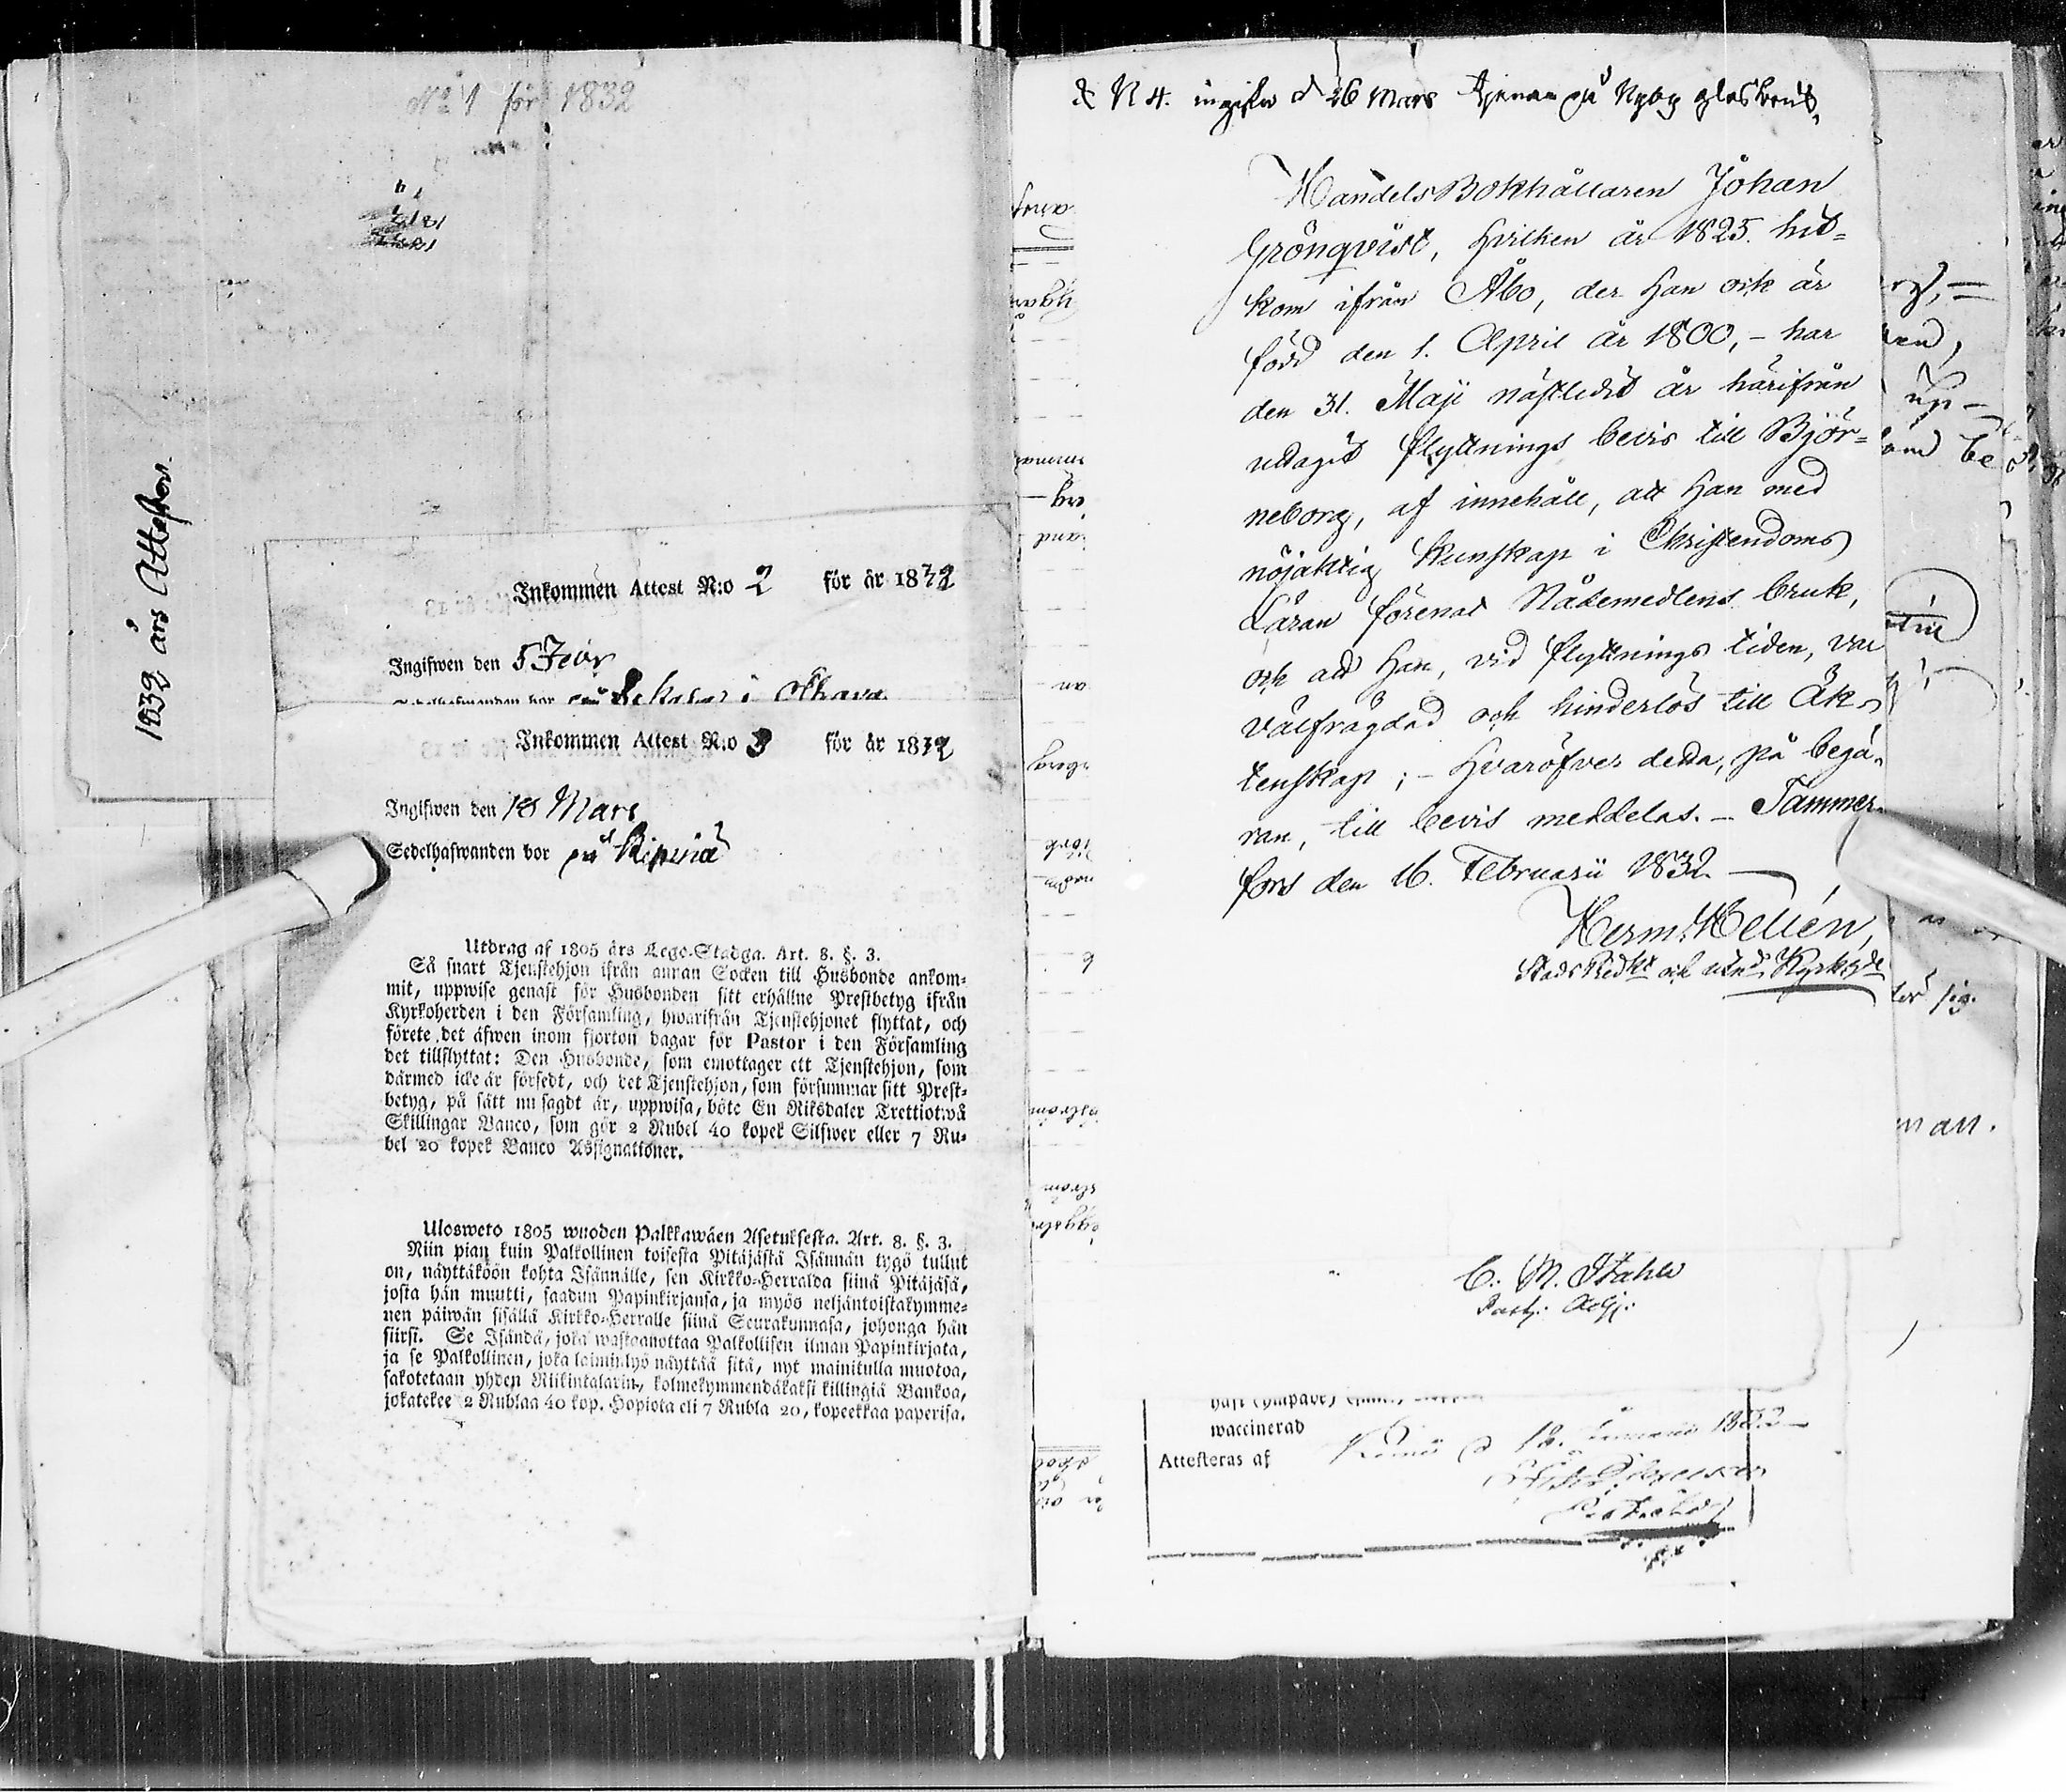 1832 års Attester.
No 1 för 1832
Inkommen Attest N:o 2 för år 1832
Ingifwen den 5 Febr
i Okhava
Inkommen Attest N:o 3 för år 1832
Ingifwen den 18 Mars
Sedelhafwanden bor på Ripuiä
Utdrag af 1805 års Lego-Stadga. Art. 8. §. 3.
Så snart Tjenstehjon ifrån annan Socken till Husbonde ankom-
mit, uppwise genast för Husbonden sitt erhållne Prestbetyg ifrån
Kyrkoherden i den Församling, hwarifrån Tjenstehjonet flyttat, och
förete det äfwen inom fjorton dagar för Pastor i den Församling
det tillflyttat: Den Husbonde, som emottager ett Tjenstehjon, som
därmed icke är försedt, och det Tjenstehjon, som försummar sitt Prest-
betyg, på sätt nu sagdt är, uppwisa, böte En Riksdaler Trettiotwå
Skillingar Banco, som gör 2 Rubel 40 kopek Silfwer eller 7 Ru-
bel 20 kopek Banco Assignationer.
Ulosweto 1805 wuoden Palkkawäen Asetuksesta. Art. 8. §. 3.
Niin pian kuin Palkollinen toisesta Pitäjästä Isännän tygö tullut
on, näyttäköön kohta Isännälle, sen Kirkko-Herralda siinä Pitäjäsä,
josta hän muutti, saadun Papinkirjansa, ja myös neljäntoistakymme-
nen päiwän sisällä Kirkko-Herralle siinä Seurakunnasa, johonga hän
siirsi. Se Isändä, joka wastaanottaa Palkollisen ilman Papinkirjata,
ja se Palkollinen, joka laiminlyö näyttää sitä, nyt mainitulla muotoa,
sakotetaan yhden Riikintalarin, kolmekymmendäkaksi killingiä Bankoa,
jokatekee 2 Rublaa 40 kop. Hopiota eli 7 Rubla 20, kopeekkaa paperisa.
N 4. ingifw d 26 Mars tjenar på Nyby glasbruk.
HandelsBokhållaren Johan
Grönqvist, hvilken år 1825. hit-
kom ifrån Åbo, der Han ock är
född den 1. April år 1800, - har
den 31. Maji nästledit år härifrån
uttagit flyttnings bevis till Björ-
neborg, af innehåll, att Han med
nöjaktig kunskap i Christendoms
Läran förenat Nådemedlens bruk,
och att Han, vid flyttnings tiden, var
välfrägdad och hinderlös till Äk-
tenskap; - Hvaröfver detta, på begä-
ran, till bevis meddelas. - Tammer-
fors den 16. Februarii 1832.
Herm. Hellén,
Stads Predikt och utnd Kyrkohde
C. M. Stahle
Past. Adj.
waccinerad
Attesteras af
man.